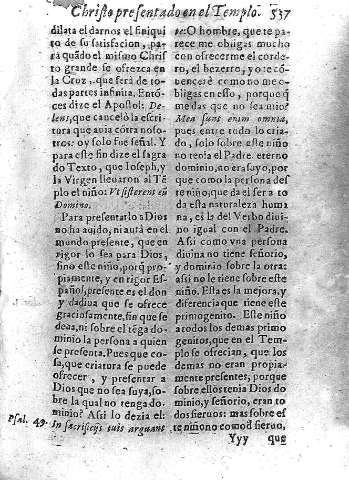 Christo presentado en el Templo. 537
dilata el darnos el finiquito
to de su satisfacion, pa-
rà quãdo el mismo Chris
to grande se ofrezca en
la Cruz, que serà de to-
das partes infinita. Entõ-
ces dize el Apostol: De-
lens, que cancelò la escri
tura que avia cõtra noso-
tros: oy solo fue señal. Y
para este fin dize el sagra
do Texto, que Ioseph, y
la Virgen lleuaron al Tẽ
plo el niño: Vt sisterent eũ
Domino.
Para presentarlo a Dios
no ha auido, ni aurà en el
mundo presente, que en
rigor lo sea para Dios,
sino este niño, porq̃ pro-
piamente, y en rigor Es-
pañol, presente es el don
y dadiua que se ofrece
graciosamente, sin que se
deua, ni sobre el tẽga do-
minio la persona a quien
se presenta. Pues que co-
sa, que criatura se puede
ofrecer, y presentar a
Dios que no sea suya, so-
bre la qual no tenga do-
minio? Assi lo dezia el:
Psal. 49. In sacrificijs tuis arguam
te: O hombre, que te pa-
rece me obligas mucho
con ofrecerme el corde-
ro, el bezerro, y o te cõ-
uencerè como no me o-
bligas en esso, porque q̃
me das que no sea mio?
Mea sunt enim omnia,
pues entre todo lo cria-
do, solo sobre este niño
no tenia el Padre eterno
dominio, no era suyo, por
que como la persona des
te niño, que da el ser a to
da esta naturaleza huma
na, es la del Verbo diui-
no igual con el Padre.
Assi como vna persona
diuina no tiene señorio,
y dominio sobre la otra:
assi no le tiene sobre este
niño. Esta es la mejora, y
diferencia que tiene este
primogenito. Este niño
a todos los demas primo
genitos, que en el Tem-
plo se ofrecian, que los
demas no eran propia-
mente presentes, porque
sobre ellos tenia Dios do
minio, y señorio, eran to
dos sieruos: mas sobre es
te niño no como à sieruo,
Yyy que